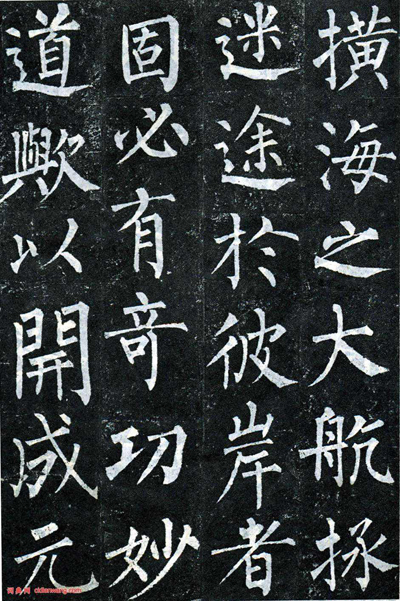 撗海之大航拯
迷途於彼岸者
固必有竒功妙
道歟以開成元
词典网 cidianwang.com